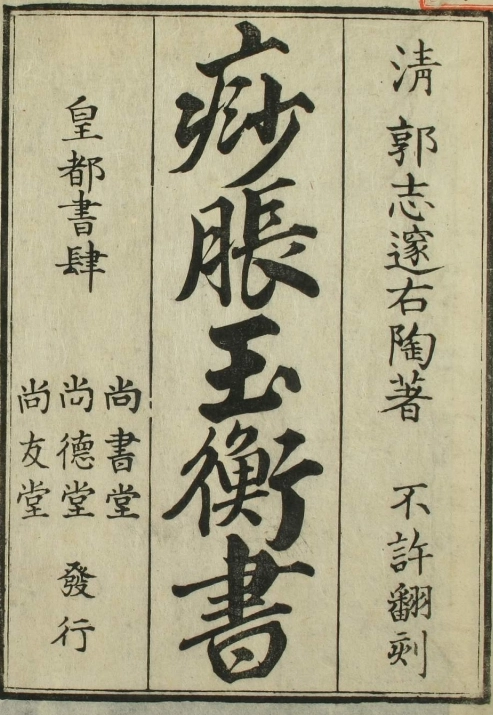 清 郭志邃右陶著 不許翻刻
痧脹玉衡書
皇都書肆
尚書堂
尚德堂
尚友堂
發行